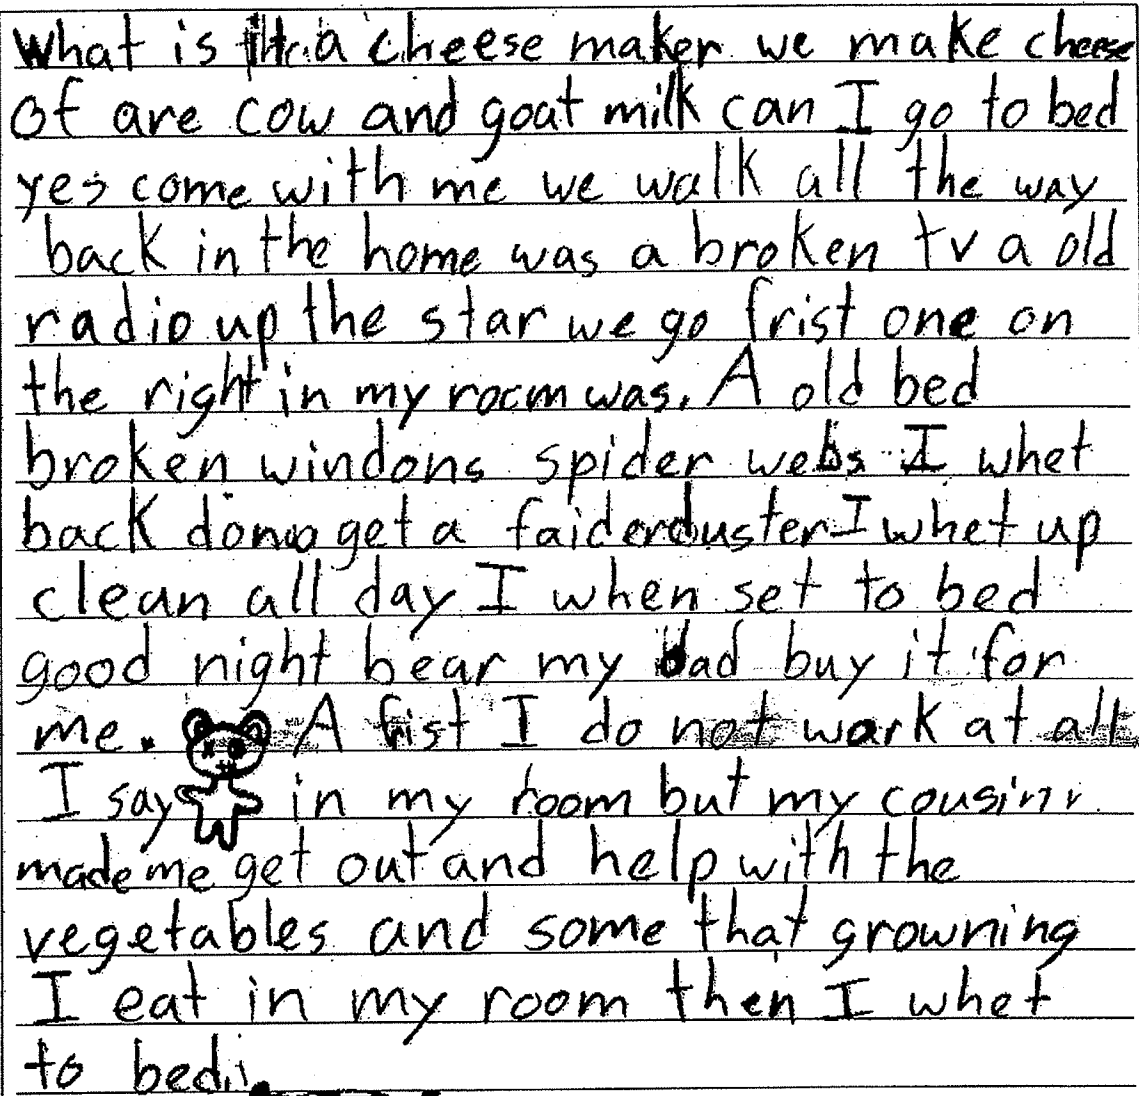 What is a cheese maker we make cheese
of are cow and goat milk can I go to bed
yes come with me we walk all the way
back in the home was a broken tv a old
radio up the star we go frist one on
the right in my room was. A old bed
broken windons spider webs I whet
back down get a faiderduster I whet up
clean all day I when set to bed
good night bear my dad buy it for
me. A fist I do not work at all
I say in my room but my cousin
made me get out and help with the
vegetables and some that grownning
I eat in my room then I whet
to bed.